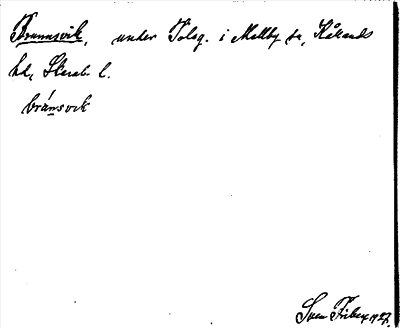 Brunnsvik, under Tolsg. i Mellby sn, Kållands
hd, Skarab. l.
brúnsvik
Sven Friberg 1927.